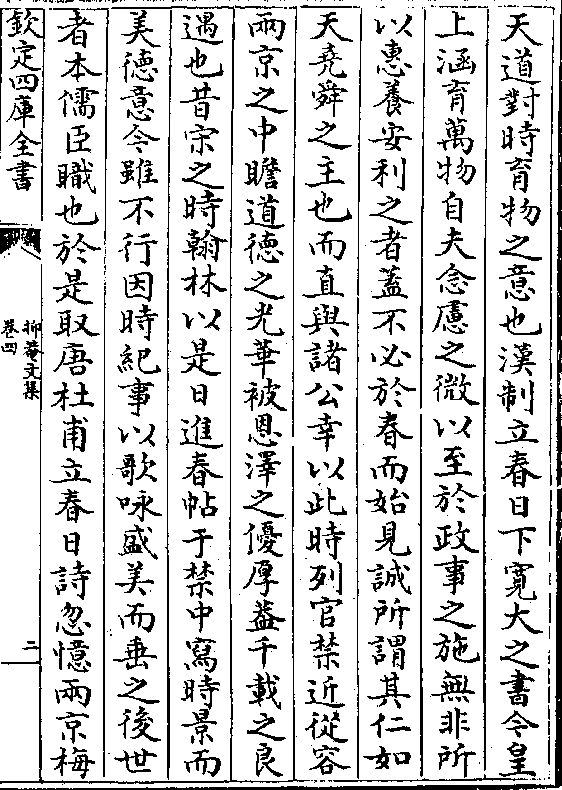 天道對時育物之意也漢制立春日下寛大之書今皇
上涵育萬物自夫念慮之微以至於政事之施無非所
以惠養安利之者蓋不必於春而始見誠所謂其仁如
天堯舜之主也而直與諸公幸以此時列官禁近從容
兩京之中瞻道德之光華被恩澤之優厚蓋千載之良
遇也昔宋之時翰林以是日進春帖于禁中寫時景而
美德意今雖不行因時紀事以歌咏盛美而垂之後世
者本儒臣職也於是取唐杜甫立春日詩忽憶兩京梅
欽定四庫全書
抑菴文集
卷四
二